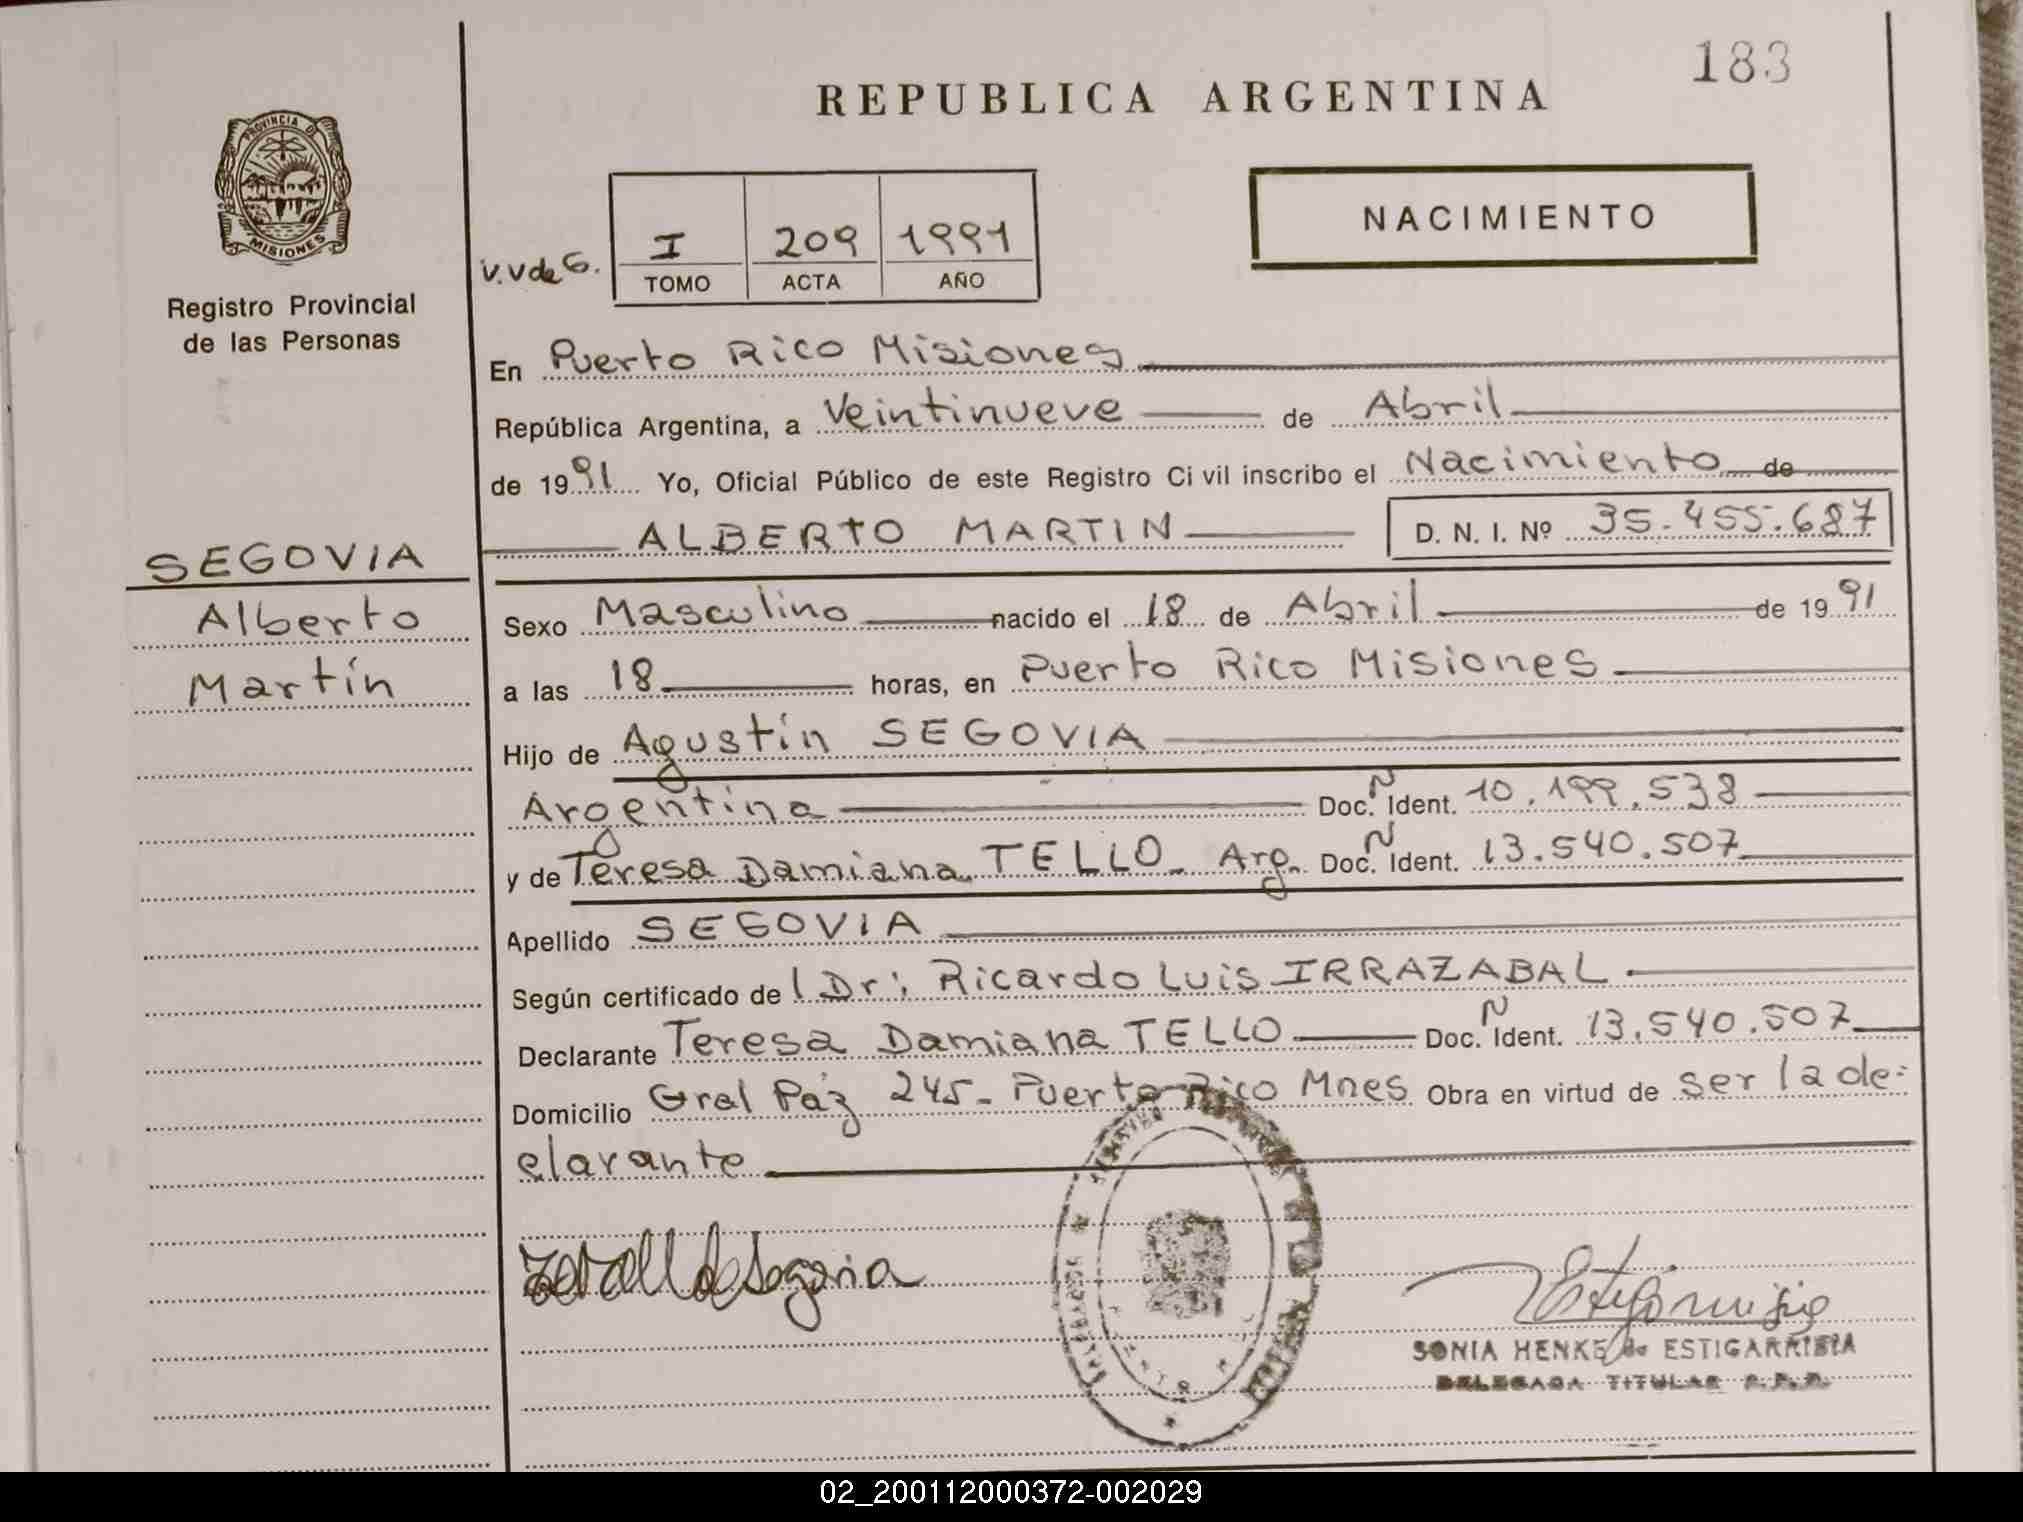 183
REPUBLICA ARGENTINA
PROVINCIA DE
MISIONES
Registro Provincial
de las Personas
V.V de G.
I 209 1991
TOMO ACTA AÑO
NACIMIENTO
En Puerto Rico Misiones
República Argentina, a Veintinueve de Abril
de 1991 Yo, Oficial Público de este Registro Civil inscribo el Nacimiento de
ALBERTO MARTIN D. N. I. Nº 35.455.687
SEGOVIA
Alberto
Martín
Sexo Masculino nacido el 18 de Abril de 1991
a las 18 horas, en Puerto Rico Misiones
Hijo de Agustín SEGOVIA
Argentina Doc. N Ident. 10.199.538
y de Teresa Damiana TELLO - Arg. Doc. N Ident. 13.540.507
Apellido SEGOVIA
Según certificado de l Dr: Ricardo Luis IRRAZABAL
Declarante Teresa Damiana TELLO Doc. N Ident. 13.540.507
Domicilio Gral Páz 245- Puerto Rico Mnes Obra en virtud de ser la de-
clarante
de Segovia
SONIA HENKE de ESTIGARRIBIA
DELEGADA TITULAR R.P.P.
02_200112000372-002029